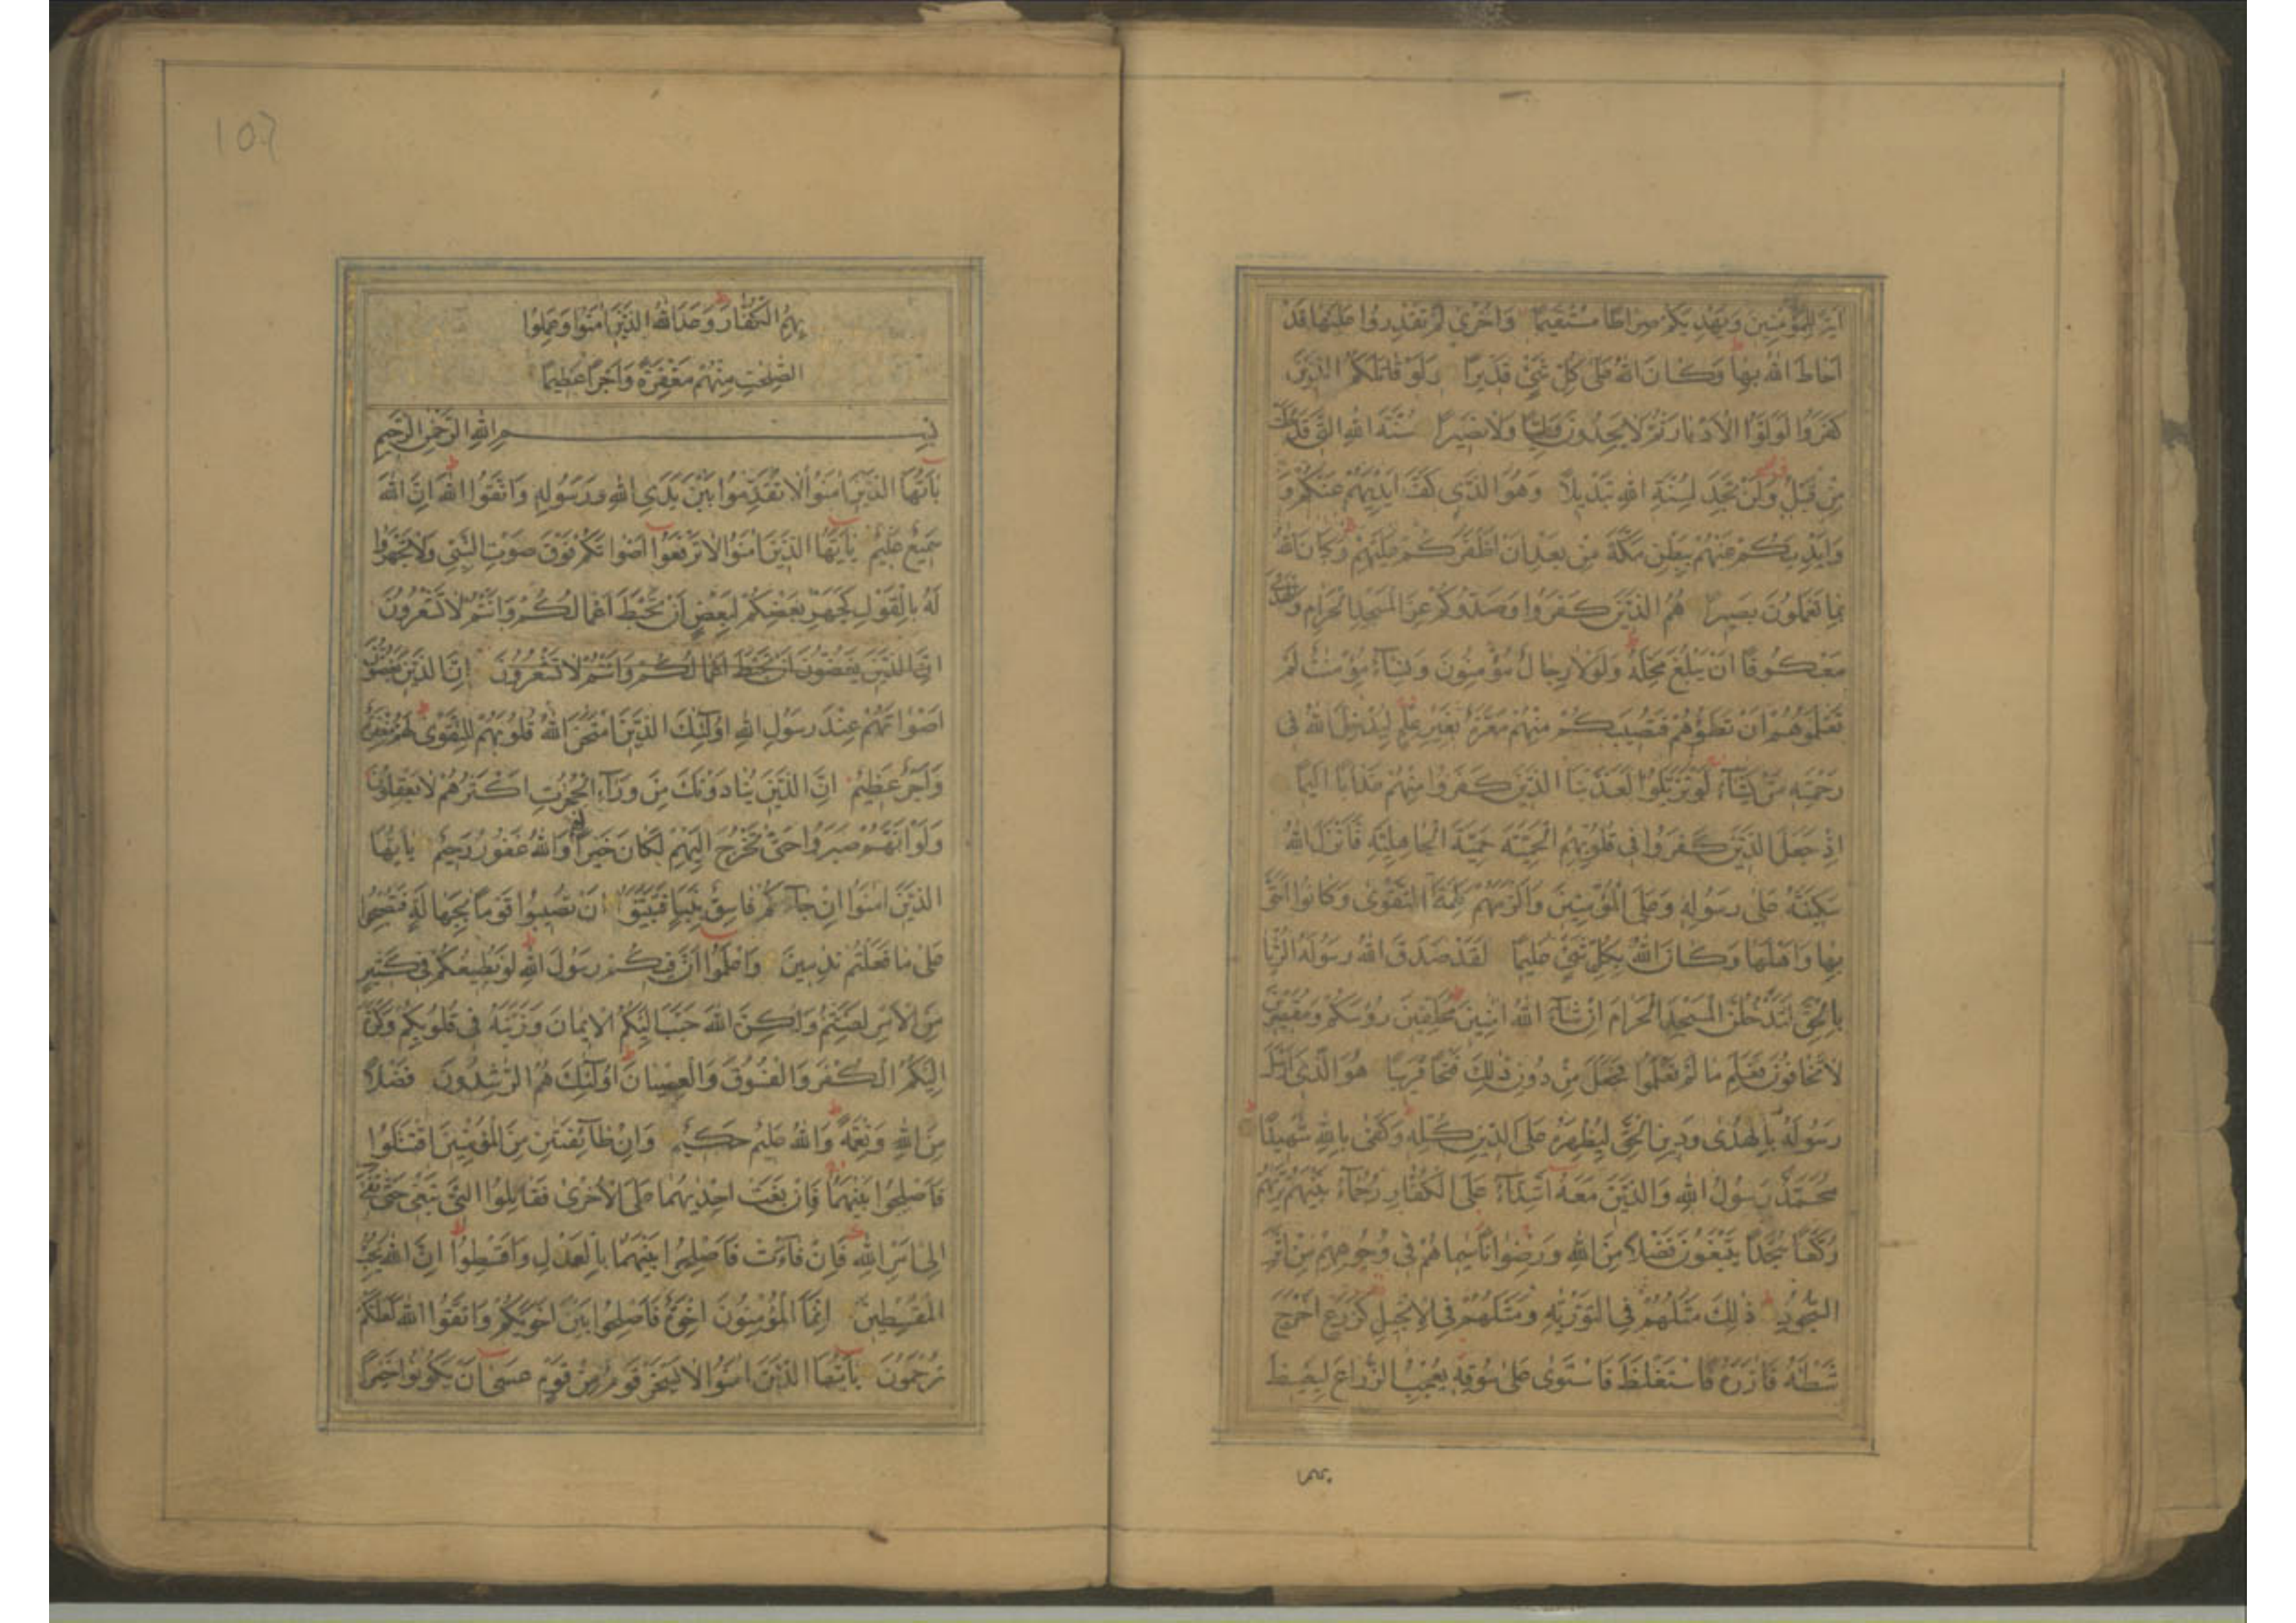 اٰيَةً لِلْمُؤْمِنِينَ وَيَهْدِيَكُمْ صِرَاطًا مُسْتَقِيمًا وَاُخْرٰى لَمْ تَقْدِرُوا عَلَيْهَا قَدْ
اَحَاطَ اللهُ بِهَا وَكَانَ اللهُ عَلٰى كُلِّ شَيْءٍ قَدِيرًا وَلَوْ قَاتَلَكُمُ الَّذِينَ
كَفَرُوا لَوَلَّوُا الْاَدْبَارَ ثُمَّ لَا يَجِدُونَ وَلِيًّا وَلَا نَصِيرًا سُنَّةَ اللهِ الَّتِي قَدْ خَلَتْ
مِنْ قَبْلُ وَلَنْ تَجِدَ لِسُنَّةِ اللهِ تَبْدِيلًا وَهُوَ الَّذِي كَفَّ اَيْدِيَهُمْ عَنْكُمْ وَ
وَاَيْدِيَكُمْ عَنْهُمْ بِبَطْنِ مَكَّةَ مِنْ بَعْدِ اَنْ اَظْفَرَكُمْ عَلَيْهِمْ وَكَانَ اللهُ
بِمَا تَعْمَلُونَ بَصِيرًا هُمُ الَّذِينَ كَفَرُوا وَصَدُّوكُمْ عَنِ الْمَسْجِدِ الْحَرَامِ وَالْهَدْيَ
مَعْكُوفًا اَنْ يَبْلُغَ مَحِلَّهُ وَلَوْلَا رِجَالٌ مُؤْمِنُونَ وَنِسَاءٌ مُؤْمِنٰتٌ لَمْ
تَعْلَمُوهُمْ اَنْ تَطَؤُهُمْ فَتُصِيبَكُمْ مِنْهُمْ مَعَرَّةٌ بِغَيْرِ عِلْمٍ لِيُدْخِلَ اللهُ فِي
رَحْمَتِهِ مَنْ يَشَاءُ لَوْ تَزَيَّلُوا لَعَذَّبْنَا الَّذِينَ كَفَرُوا مِنْهُمْ عَذَابًا اَلِيمًا
اِذْ جَعَلَ الَّذِينَ كَفَرُوا فِي قُلُوبِهِمُ الْحَمِيَّةَ حَمِيَّةَ الْجَاهِلِيَّةِ فَاَنْزَلَ اللهُ
سَكِينَتَهُ عَلٰى رَسُولِهِ وَعَلَى الْمُؤْمِنِينَ وَاَلْزَمَهُمْ كَلِمَةَ التَّقْوٰى وَكَانُوا اَحَقَّ
بِهَا وَاَهْلَهَا وَكَانَ اللهُ بِكُلِّ شَيْءٍ عَلِيمًا لَقَدْ صَدَقَ اللهُ رَسُولَهُ الرُّءْيَا
بِالْحَقِّ لَتَدْخُلُنَّ الْمَسْجِدَ الْحَرَامَ اِنْ شَاءَ اللهُ اٰمِنِينَ مُحَلِّقِينَ رُؤُسَكُمْ وَمُقَصِّرِينَ
لَا تَخَافُونَ فَعَلِمَ مَا لَمْ تَعْلَمُوا فَجَعَلَ مِنْ دُونِ ذٰلِكَ فَتْحًا قَرِيبًا هُوَ الَّذِي اَرْسَلَ
رَسُولَهُ بِالْهُدٰى وَدِينِ الْحَقِّ لِيُظْهِرَهُ عَلَى الدِّينِ كُلِّهِ وَكَفٰى بِاللهِ شَهِيدًا
مُحَمَّدٌ رَسُولُ اللهِ وَالَّذِينَ مَعَهُ اَشِدَّاءُ عَلَى الْكُفَّارِ رُحَمَاءُ بَيْنَهُمْ تَرٰيهُمْ
رُكَّعًا سُجَّدًا يَبْتَغُونَ فَضْلًا مِنَ اللهِ وَرِضْوَانًا سِيمَاهُمْ فِي وُجُوهِهِمْ مِنْ اَثَرِ
السُّجُودِ ذٰلِكَ مَثَلُهُمْ فِي التَّوْرٰيةِ وَمَثَلُهُمْ فِي الْاِنْجِيلِ كَزَرْعٍ اَخْرَجَ
شَطْئَهُ فَاٰزَرَهُ فَاسْتَغْلَظَ فَاسْتَوٰى عَلٰى سُوقِهِ يُعْجِبُ الزُّرَّاعَ لِيَغِيظَ
بهم
بِهِمُ الْكُفَّارَ وَعَدَ اللهُ الَّذِينَ اٰمَنُوا وَعَمِلُوا
الصّٰلِحٰتِ مِنْهُمْ مَغْفِرَةً وَاَجْرًا عَظِيمًا
بِسْمِ اللهِ الرَّحْمٰنِ الرَّحِيمِ
يَاۤاَيُّهَا الَّذِينَ اٰمَنُوا لَا تُقَدِّمُوا بَيْنَ يَدَيِ اللهِ وَرَسُولِهِ وَاتَّقُوا اللهَ اِنَّ اللهَ
سَمِيعٌ عَلِيمٌ يَاۤاَيُّهَا الَّذِينَ اٰمَنُوا لَا تَرْفَعُوا اَصْوَاتَكُمْ فَوْقَ صَوْتِ النَّبِيِّ وَلَا تَجْهَرُوا
لَهُ بِالْقَوْلِ كَجَهْرِ بَعْضِكُمْ لِبَعْضٍ اَنْ تَحْبَطَ اَعْمَالُكُمْ وَاَنْتُمْ لَا تَشْعُرُونَ
اِنَّ الَّذِينَ يَغُضُّونَ اَنْ تَحْبَطَ اَعْمَالُكُمْ وَاَنْتُمْ لَا تَشْعُرُونَ اِنَّ الَّذِينَ يَغُضُّونَ
اَصْوَاتَهُمْ عِنْدَ رَسُولِ اللهِ اُولٰئِكَ الَّذِينَ امْتَحَنَ اللهُ قُلُوبَهُمْ لِلتَّقْوٰى لَهُمْ مَغْفِرَةٌ
وَاَجْرٌ عَظِيمٌ اِنَّ الَّذِينَ يُنَادُونَكَ مِنْ وَرَاءِ الْحُجُرٰتِ اَكْثَرُهُمْ لَا يَعْقِلُونَ
وَلَوْ اَنَّهُمْ صَبَرُوا حَتّٰى تَخْرُجَ اِلَيْهِمْ لَكَانَ خَيْرًا لَهُمْ وَاللهُ غَفُورٌ رَحِيمٌ يَاۤاَيُّهَا
الَّذِينَ اٰمَنُوا اِنْ جَاءَكُمْ فَاسِقٌ بِنَبَاٍ فَتَبَيَّنُوا اَنْ تُصِيبُوا قَوْمًا بِجَهَالَةٍ فَتُصْبِحُوا
عَلٰى مَا فَعَلْتُمْ نٰدِمِينَ وَاعْلَمُوا اَنَّ فِيكُمْ رَسُولَ اللهِ لَوْ يُطِيعُكُمْ فِي كَثِيرٍ
مِنَ الْاَمْرِ لَعَنِتُّمْ وَلٰكِنَّ اللهَ حَبَّبَ اِلَيْكُمُ الْاِيمَانَ وَزَيَّنَهُ فِي قُلُوبِكُمْ وَكَرَّهَ
اِلَيْكُمُ الْكُفْرَ وَالْفُسُوقَ وَالْعِصْيَانَ اُولٰئِكَ هُمُ الرّٰشِدُونَ فَضْلًا
مِنَ اللهِ وَنِعْمَةً وَاللهُ عَلِيمٌ حَكِيمٌ وَاِنْ طَاۤئِفَتٰنِ مِنَ الْمُؤْمِنِينَ اقْتَتَلُوا
فَاَصْلِحُوا بَيْنَهُمَا فَاِنْ بَغَتْ اِحْدٰيهُمَا عَلَى الْاُخْرٰى فَقَاتِلُوا الَّتِي تَبْغِي حَتّٰى تَفِيءَ
اِلٰى اَمْرِ اللهِ فَاِنْ فَاءَتْ فَاَصْلِحُوا بَيْنَهُمَا بِالْعَدْلِ وَاَقْسِطُوا اِنَّ اللهَ يُحِبُّ
الْمُقْسِطِينَ اِنَّمَا الْمُؤْمِنُونَ اِخْوَةٌ فَاَصْلِحُوا بَيْنَ اَخَوَيْكُمْ وَاتَّقُوا اللهَ لَعَلَّكُمْ
تُرْحَمُونَ يَاۤاَيُّهَا الَّذِينَ اٰمَنُوا لَا يَسْخَرْ قَوْمٌ مِنْ قَوْمٍ عَسٰى اَنْ يَكُونُوا خَيْرًا